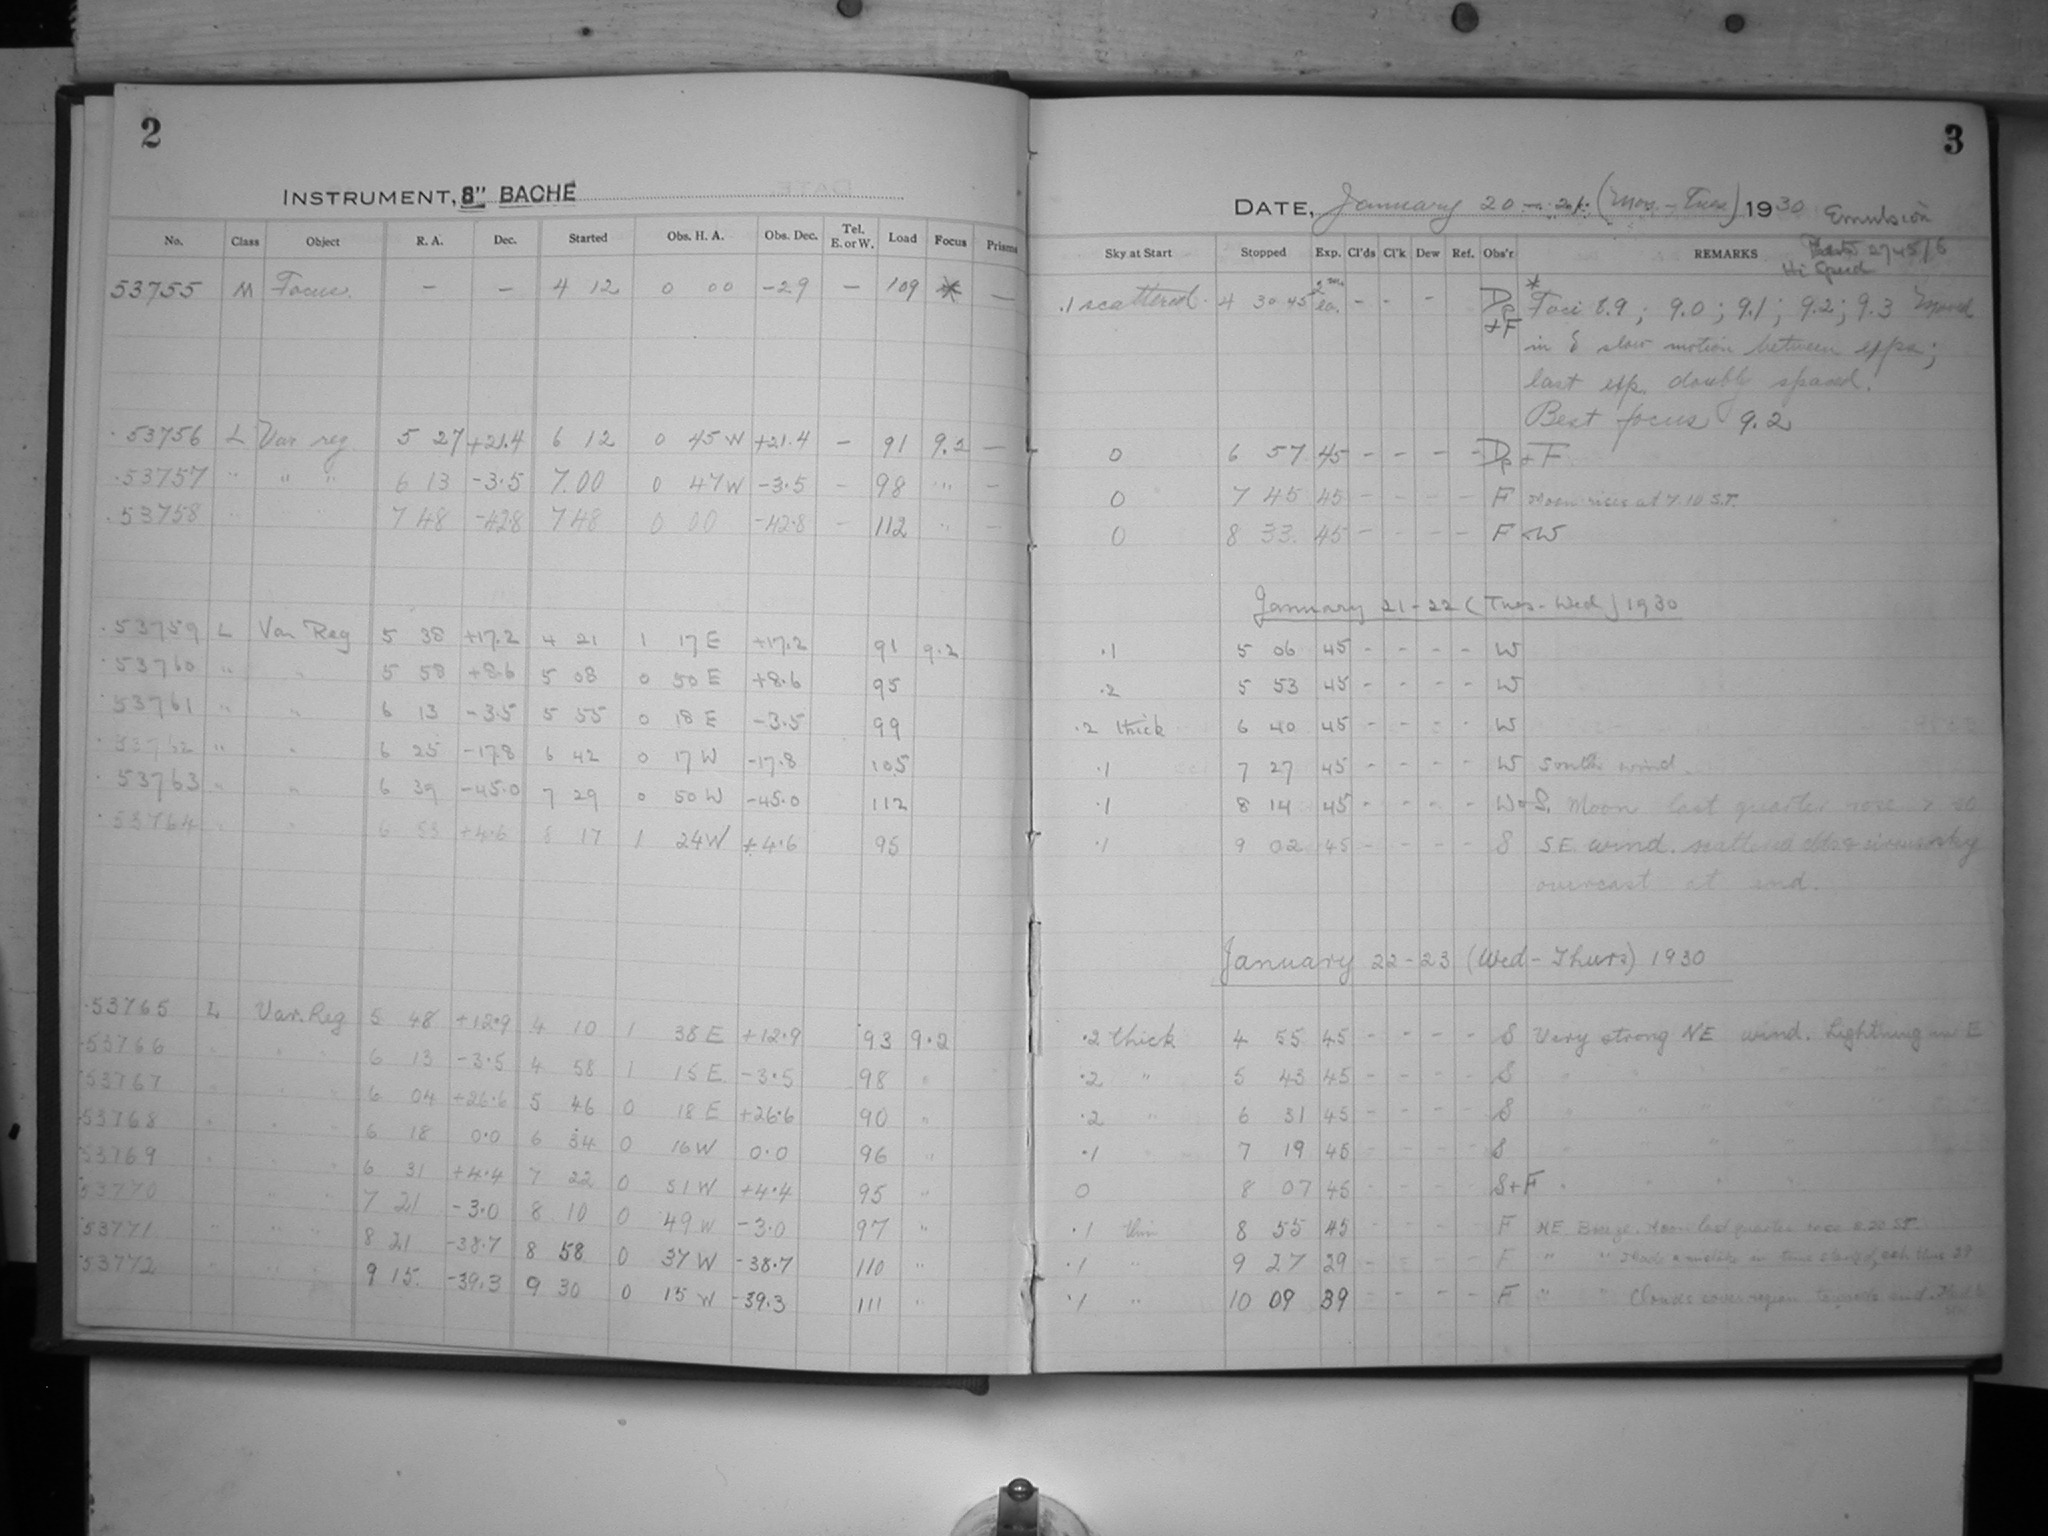 2
INSTRUMENT, 8" BACHE
No. Class Object R. A. Dec. Started Obs. H. A. Obs. Dec. Tel. E. or W. Load Focus Prisms
53755 M Focus. - - 4 12 0 00 -29 - 109 * -
53756 L Var reg. 5 27 +21.4 6 12 0 45 W +21.4 - 91 9.2 -
53757 " " " 6 13 -3.5 7.00 0 47 W -3.5 - 98 " -
53758 " 7 48 -42.8 7 48 0 00 -42.8 - 112 " -
53759 L Var Reg 5 38 +17.2 4 21 1 17 E +17.2 91 9.2
53760 " " 5 58 +8.6 5 08 0 50 E +8.6 95
53761 " " 6 13 -3.5 5 55 0 18 E -3.5 99
53762 " " 6 25 -17.8 6 42 0 17 W -17.8 105
53763 " " 6 39 -45.0 7 29 0 50 W -45.0 112
53764 " " 6 53 +4.6 8 17 1 24 W +4.6 95
53765 L Var. Reg 5 48 +12.9 4 10 1 38 E +12.9 93 9.2
53766 " " " 6 13 -3.5 4 58 1 15 E -3.5 98 "
53767 " " " 6 04 +26.6 5 46 0 18 E +26.6 90 "
53768 " " " 6 18 0.0 6 34 0 16 W 0.0 96 "
53769 " " " 6 31 +4.4 7 22 0 51 W +4.4 95 "
53770 " " " 7 21 -3.0 8 10 0 49 W -3.0 97 "
53771 " " " 8 21 -38.7 8 58 0 37 W -38.7 110 "
53772 " " " 9 15. -39.3 9 30 0 15 W -39.3 111 "
3
DATE, January 20 - 21. (Mon - Tues) 1930 Emulsion
2745/6
Hi Speed
Sky at Start Stopped Exp. Cl'ds Cl'k Dew Ref. Obs'r REMARKS
.1 scattered. 4 30 45 2m ea. - - - Dp + F * Foci 8.9; 9.0; 9.1; 9.2; 9.3 Moved
in E slow motion between exps;
last exp. doubly spaced.
Best focus 9.2
0 6 57 45 - - - - Dp + F
0 7 45 45 - - - - F Moon rises at 7 10 S.T.
0 8 33. 45 - - - - F + W
January 21-22 (Tues - Wed) 1930
.1 5 06 45 - - - - W
.2 5 53 45 - - - - W
.2 thick 6 40 45 - - - - W
.1 7 27 45 - - - - W South wind.
.1 8 14 45 - - - - W + S. Moon last quarter rose 7 56
.1 9 02 45 - - - - S S.E. wind. scattered clds & sky
overcast at end.
January 22-23 (Wed - Thurs) 1930
.2 thick 4 55 45 - - - - S Very strong NE wind. Lightning in E
.2 " 5 43 45 - - - - S " " " " "
.2 " 6 31 45 - - - - S " " " " "
.1 " 7 19 45 - - - - S " " " " "
0 8 07 45 - - - - S + F " " " " "
.1 thin 8 55 45 - - - - F NE Breeze. Moon last quarter rose 8.20 ST
.1 " 9 27 29 - - - - F " " mistake in time
.1 " 10 09 39 - - - - F " " Clouds cover region towards end.